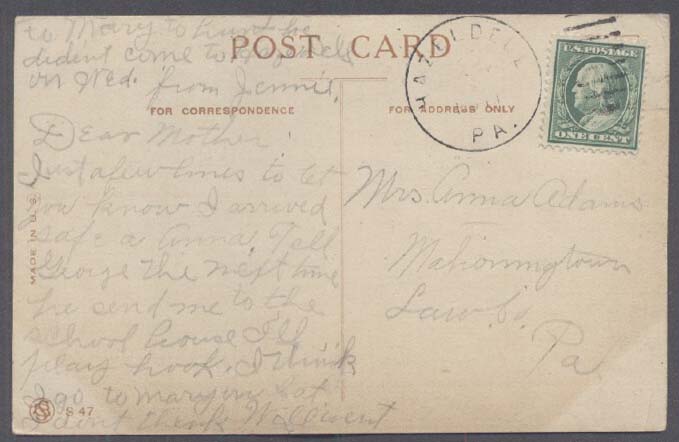 to Mary to hunt he
dident come to
on Wed. from Jennie.
POST CARD
HAZEL DELL
PA.
U.S. POSTAGE
ONE CENT
FOR CORRESPONDENCE
FOR ADDRESS ONLY
Dear Mother
Just a few lines to let
you know I arrived
safe a Anna Tell
George the next time
he send me to the
school house I'll
play hook. I think
I go to Sat
I dont think
Mrs. Anna Adams
Mahoningtown
Law. Co.
Pa
MADE IN U.S.
S 47